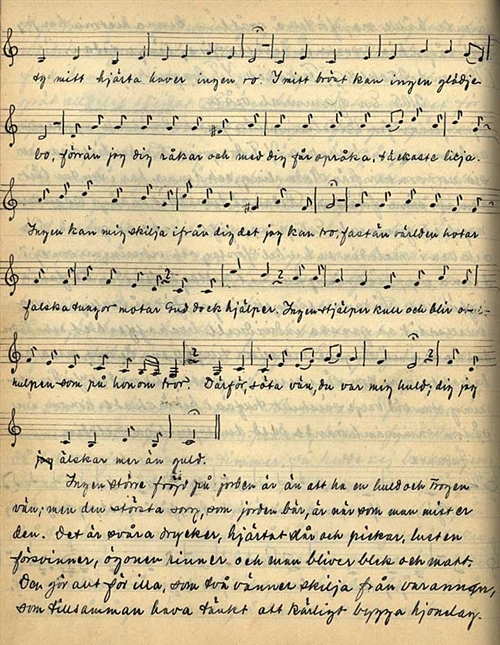 ty mitt hjärta haver ingen ro. I mitt bröst kan ingen glädje
bo, förrän jag dig råkar och med dig får språka, täckaste lilja.
Ingen kan mig skilja ifrån dig det jag kan tro, fastän världen hotar
falska tungor motar Gud dock hjälper. Ingen stjälper kull och blir o-
hulpen som på honom tror. Därför, söta vän, du var mig huld; dig jag
jag älskar mer än guld.
Ingen större fröjd på jorden är än att ha en huld och trogen
vän; men den största sorg, som jorden bär, är när som man mister
den. Det är svåra drycker, hjärtat slår och pickar, lusten
försvinner, ögonen rinner och man bliver blek och matt.
Den gör allt för illa, som två vänner skilja från varannan,
som tillsamman hava tänkt att kärligt bygga hjonelag.